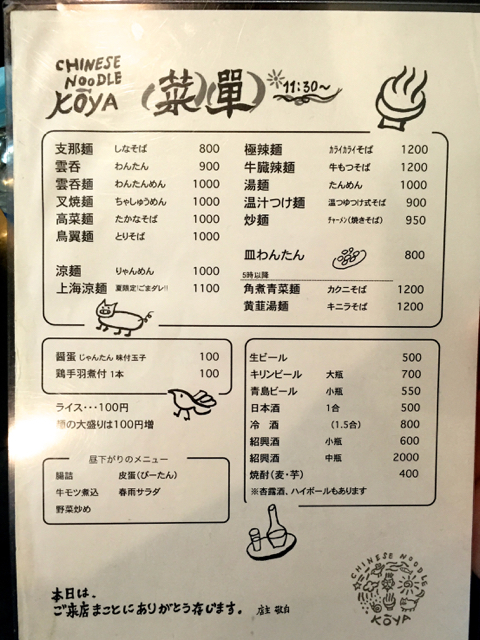 CHINESE
NOODLE
KŌYA
(菜)(單)
11:30〜
支那麺 しなそば 800
雲呑 わんたん 900
雲呑麺 わんたんめん 1000
叉焼麺 ちゃしゅうめん 1000
高菜麺 たかなそば 1000
鳥翼麺 とりそば 1000
涼麺 りゃんめん 1000
上海涼麺 夏限定!ごまダレ!! 1100
極辣麺 カライカライそば 1200
牛臓辣麺 牛もつそば 1200
湯麺 たんめん 1000
温汁つけ麺 温つゆつけ式そば 900
炒麺 チャーメン(焼きそば) 950
皿わんたん 800
5時以降
角煮青菜麺 カクニそば 1200
黄韮湯麺 キニラそば 1200
醤蛋 じゃんたん 味付玉子 100
鶏手羽煮付 1本 100
ライス・・・100円
の大盛りは100円増
昼下がりのメニュー
腸詰 皮蛋(ぴーたん)
牛モツ煮込 春雨サラダ
野菜炒め
生ビール 500
キリンビール 大瓶 700
青島ビール 小瓶 550
日本酒 1合 500
冷 酒 (1.5合) 800
紹興酒 小瓶 600
紹興酒 中瓶 2000
焼酎(麦・芋) 400
※杏露酒、ハイボールもあります
本日は、
ご来店まことにありがとう存じます。 店主 敬白
CHINESE NOODLE
KŌYA